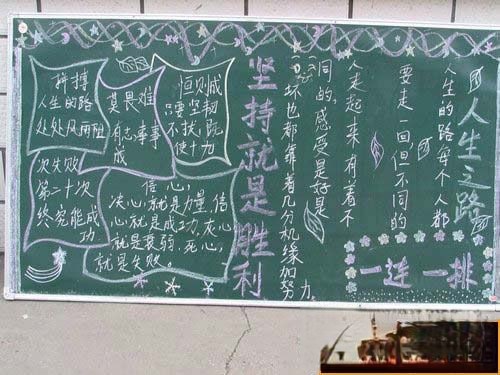 人生之路
人生的路每个人都
要走一回,但不同的
人走起来有着不
同的,感受是好是
坏也都靠着几分机缘加努力
一连一排
坚持就是胜利
拼搏
人生的路
处处风雨阻
莫畏难
有志事事
成
恒则成
只要坚韧
不拔
次失败
第一十次
终究能成
功
信心,
决心,就是力量,信
心,就是成功,灰心,
就是衰弱,死心,
就是失败。